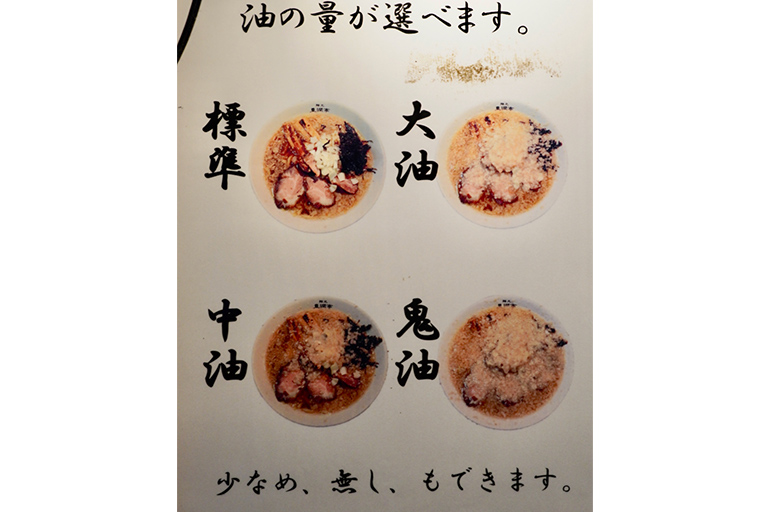 油の量が選べます。
標準
大油
中油
鬼油
少なめ、無し、もできます。